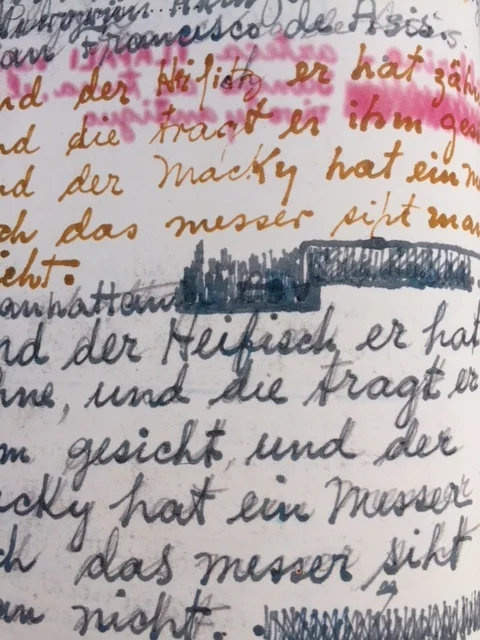 an Francisco de Asis.
nd der Heifitz er hat zäh
nd die tragt er ihm gesi
nd der Macky hat ein m
ch das messer siht man
ieht.
anhattan
nd der Heifisch er hat
hne, und die tragt er
m gesicht, und der
acky hat ein Messer
ch das messer siht
an nicht.